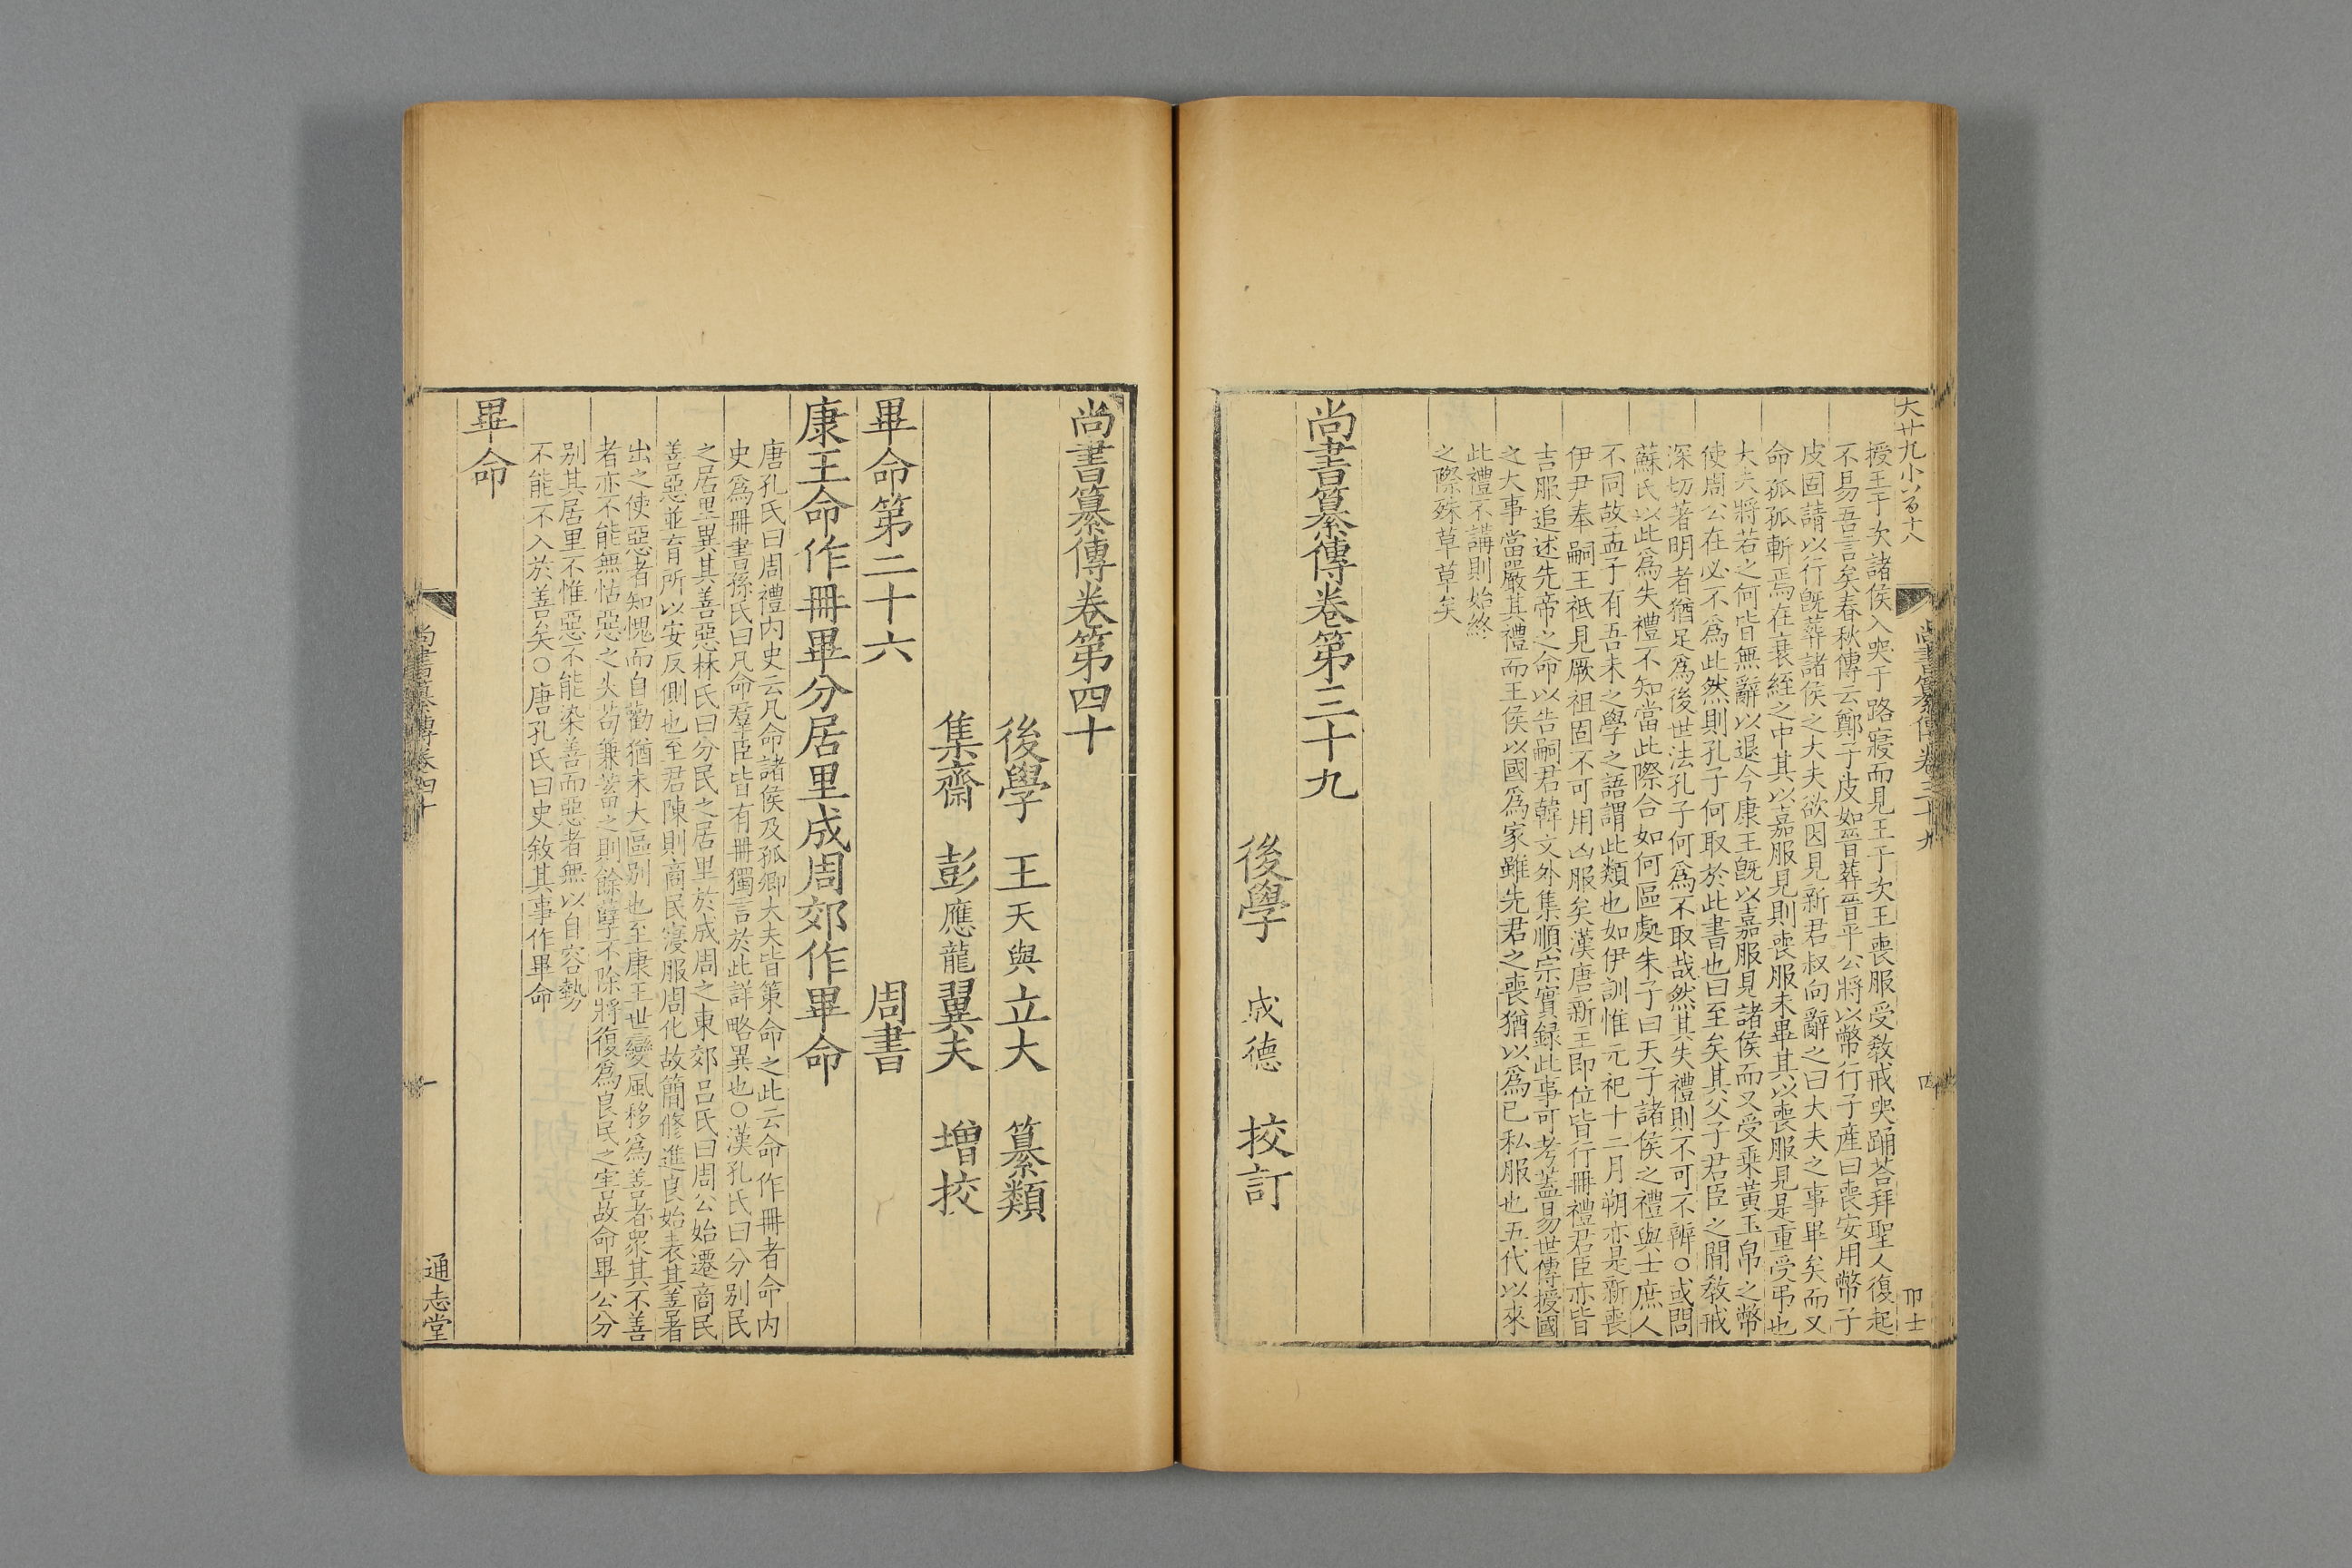 尚書纂傳卷三十九
四
大廿九小六百十八
卩士
授王于次諸侯入哭于路寢而見王于次王喪服受敎戒哭踊荅拜聖人復起
不易吾言矣春秋傳云鄭子皮如晉葬晉平公將以幣行子産曰喪安用幣子
皮固請以行旣葬諸侯之大夫欲因見新君叔向辭之曰大夫之事畢矣而又
命孤孤斬焉在衰絰之中其以嘉服見則喪服未畢其以喪服見是重受弔也
大夫將若之何皆無辭以退今康王旣以嘉服見諸侯而又受乘黃玉帛之幣
使周公在必不爲此然則孔子何取於此書也曰至矣其父子君臣之間敎戒
深切著明者猶足爲後世法孔子何爲不取哉然其失禮則不可不辨○或問
蘇氏以此爲失禮不知當此際合如何區處朱子曰天子諸侯之禮與士庶人
不同故孟子有吾未之學之語謂此類也如伊訓惟元祀十二月朔亦是新喪
伊尹奉嗣王祗見厥祖固不可用凶服矣漢唐新主即位皆行冊禮君臣亦皆
吉服追述先帝之命以告嗣君韓文外集順宗實録此事可考蓋易世傳授國
之大事當嚴其禮而王侯以國爲家雖先君之喪猶以爲已私服也五代以來
此禮不講則始終
之際殊草草矣
尚書纂傳卷第三十九
後學 成德 挍訂
尚書纂傳卷第四十
後學 王天與立大 纂類
集齋 彭應龍翼夫 增挍
畢命第二十六 周書
康王命作冊畢分居里成周郊作畢命
唐孔氏曰周禮內史云凡命諸侯及孤卿大夫皆策命之此云命作冊者命內
史爲冊書孫氏曰凡命羣臣皆有冊獨言於此詳略異也○漢孔氏曰分别民
之居里異其善惡林氏曰分民之居里於成周之東郊呂氏曰周公始遷商民
善惡並育所以安反側也至君陳則商民寖服周化故簡修進良始表其善者
出之使惡者知愧而自勸猶未大區别也至康王世變風移爲善者衆其不善
者亦不能無怙惡之人苟兼蓄之則餘孽不除將復爲良民之害故命畢公分
别其居里不惟惡不能染善而惡者無以自容勢
不能不入於善矣○唐孔氏曰史敘其事作畢命
畢命
尚書纂傳卷四十
一
通志堂